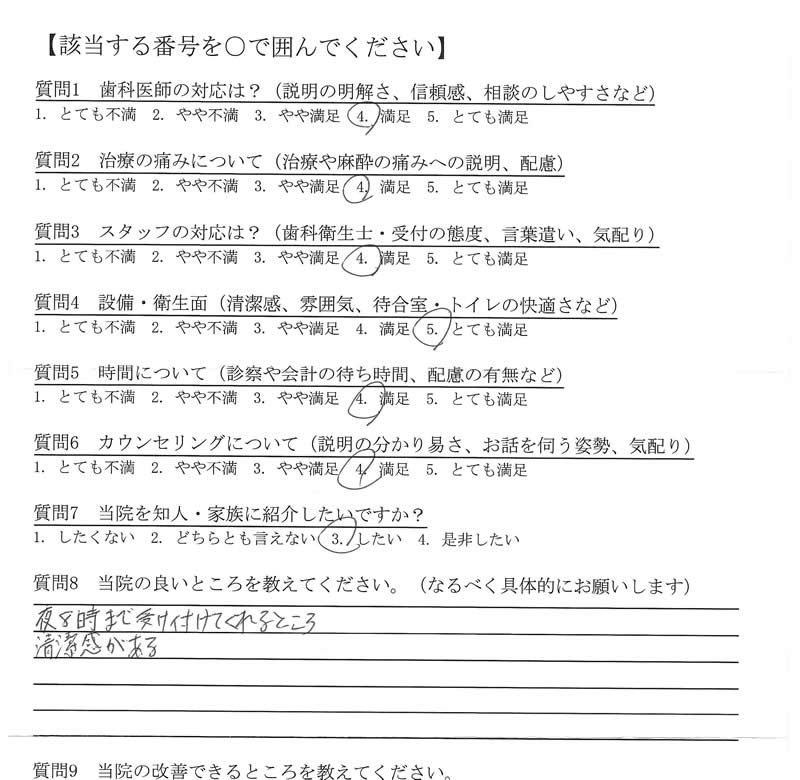 【該当する番号を〇で囲んでください】
質問1 歯科医師の対応は？（説明の明解さ、信頼感、相談のしやすさなど）
1. とても不満 2. やや不満 3. やや満足 4. 満足 5. とても満足
質問2 治療の痛みについて（治療や麻酔の痛みへの説明、配慮）
1. とても不満 2. やや不満 3. やや満足 4. 満足 5. とても満足
質問3 スタッフの対応は？（歯科衛生士・受付の態度、言葉遣い、気配り）
1. とても不満 2. やや不満 3. やや満足 4. 満足 5. とても満足
質問4 設備・衛生面（清潔感、雰囲気、待合室・トイレの快適さなど）
1. とても不満 2. やや不満 3. やや満足 4. 満足 5. とても満足
質問5 時間について（診察や会計の待ち時間、配慮の有無など）
1. とても不満 2. やや不満 3. やや満足 4. 満足 5. とても満足
質問6 カウンセリングについて（説明の分かり易さ、お話を伺う姿勢、気配り）
1. とても不満 2. やや不満 3. やや満足 4. 満足 5. とても満足
質問7 当院を知人・家族に紹介したいですか？
1. したくない 2. どちらとも言えない 3. したい 4. 是非したい
質問8 当院の良いところを教えてください。（なるべく具体的にお願いします）
夜8時まで受け付けてくれるところ
清潔感がある
質問9 当院の改善できるところを教えてください。